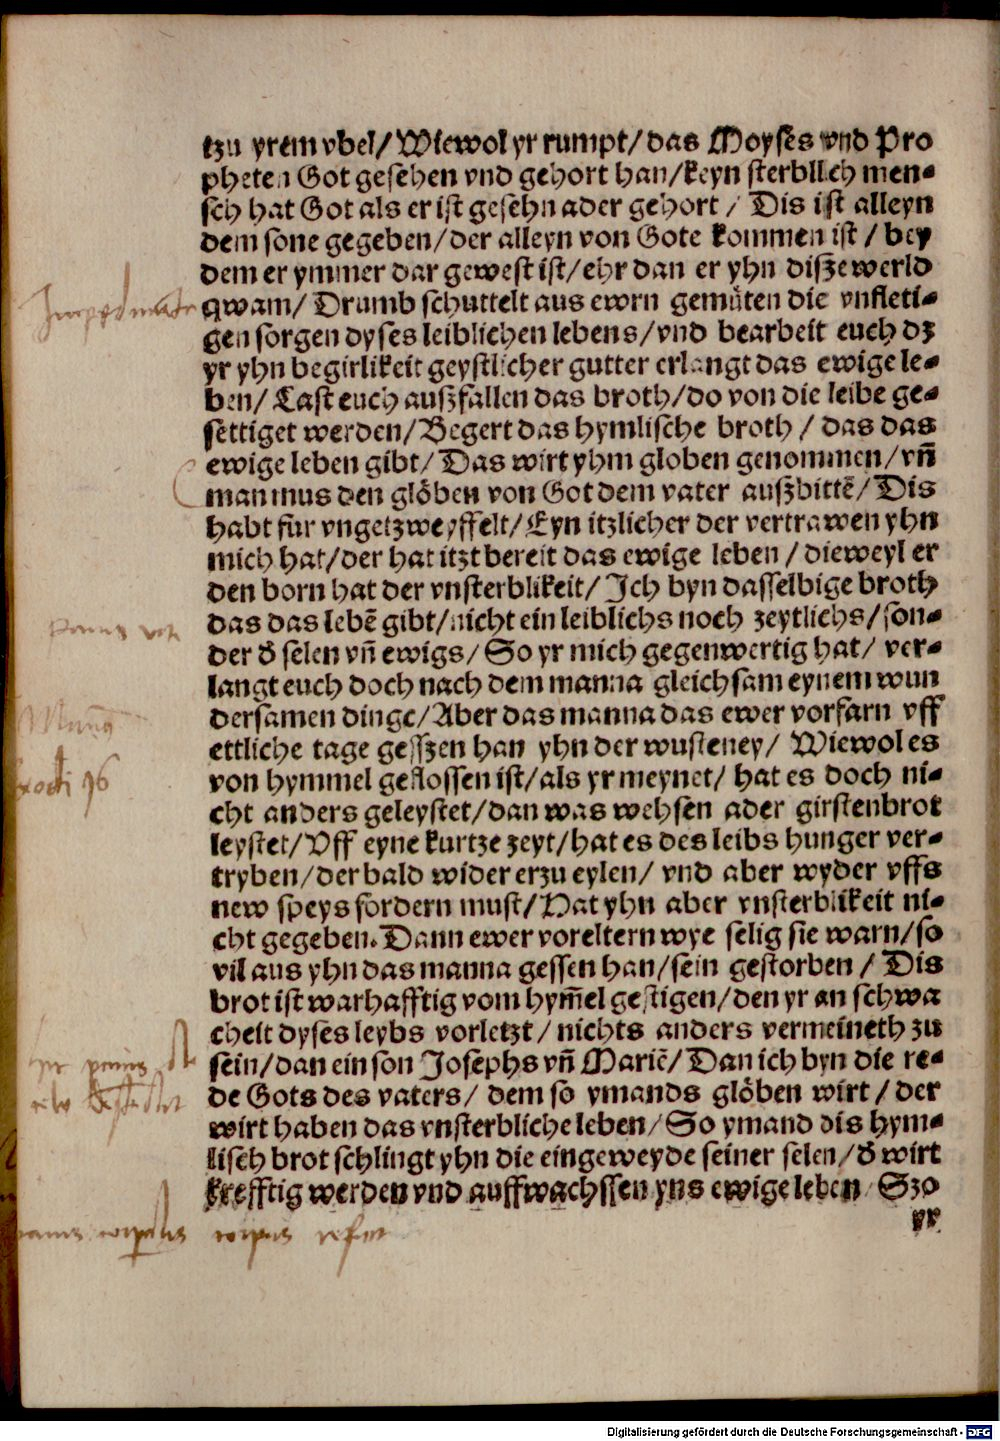 tzu yrem vbel/ Wiewol yr rumpt/ das Moyses vnd Pro
pheten Got gesehen vnd gehort han/ keyn sterblich men⸗
sch hat Got als er ist gesehn ader gehort / Dis ist alleyn
dem sone gegeben/ der alleyn von Gote kommen ist / bey
dem er ymmer dar gewest ist/ ehr dan er yhn disze werld
qwam/ Drumb schuttelt aus ewrn gemüten die vnfleti⸗
gen sorgen dyses leiblichen lebens/ vnd bearbeit euch dz
yr yhn begirlikeit geystlicher gutter erlangt das ewige le⸗
ben/ Last euch auszfallen das broth/ do von die leibe ge⸗
settiget werden/ Begert das hymlische broth / das das
ewige leben gibt/ Das wirt yhm globen genommen/ vn̄
man mus den glöben von Got dem vater auszbittē/ Dis
habt fur vngetzweyffelt/ Eyn itzlicher der vertrawen yhn
mich hat/ der hat itzt bereit das ewige leben / dieweyl er
den born hat der vnsterblikeit/ Ich byn dasselbige broth
das das lebē gibt/ nicht ein leiblichs noch zeytlichs/ son⸗
der d̕ selen vn̄ ewigs/ So yr mich gegenwertig hat/ ver⸗
langt euch doch nach dem manna gleichsam eynem wun
dersamen dinge/ Aber das manna das ewer vorfarn vff
ettliche tage geszen han yhn der wusteney/ Wiewol es
von hymmel geflossen ist/ als yr meynet/ hat es doch ni⸗
cht anders geleystet/ dan was wehsen ader girstenbrot
leystet/ Vff eyne kurtze zeyt/ hat es des leibs hunger ver⸗
tryben/ der bald wider erzu eylen/ vnd aber wyder vffs
new speys fordern must/ Hat yhn aber vnsterblikeit ni⸗
cht gegeben. Dann ewer voreltern wye selig sie warn/ so
vil aus yhn das manna gessen han/ sein gestorben / Dis
brot ist warhafftig vom hym̄el gestigen/ den yr an schwa
cheit dyses leybs vorletzt / nichts anders vermeineth zu
sein/ dan ein son Josephs vn̄ Mariē/ Dan ich byn die re⸗
de Gots des vaters/ dem so ymands glöben wirt / der
wirt haben das vnsterbliche leben/ So ymand dis hym⸗
lisch brot schlingt yhn die eingeweyde seiner selen/ d̕ wirt
krefftig werden vnd auffwachssen yns ewige leben/ Szo
yr
panis
Exodi 16
corpus
Digitalisierung gefördert durch die Deutsche Forschungsgemeinschaft - DFG